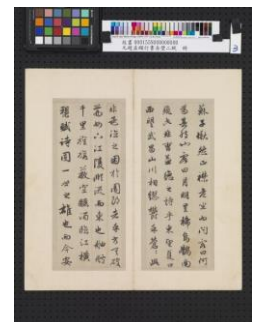 蘇子愀然正襟危坐而問客曰何
為其然也客曰月明星稀烏鵲南
飛此非曹孟德之詩乎東望夏口
西望武昌山川相繆鬱乎蒼蒼此
非孟德之困於周郎者乎方其破
荊州下江陵順流而東也舳艫
千里旌旗蔽空釃酒臨江橫
槊賦詩固一世之雄也而今安
元趙孟頫行書赤壁二賦 冊